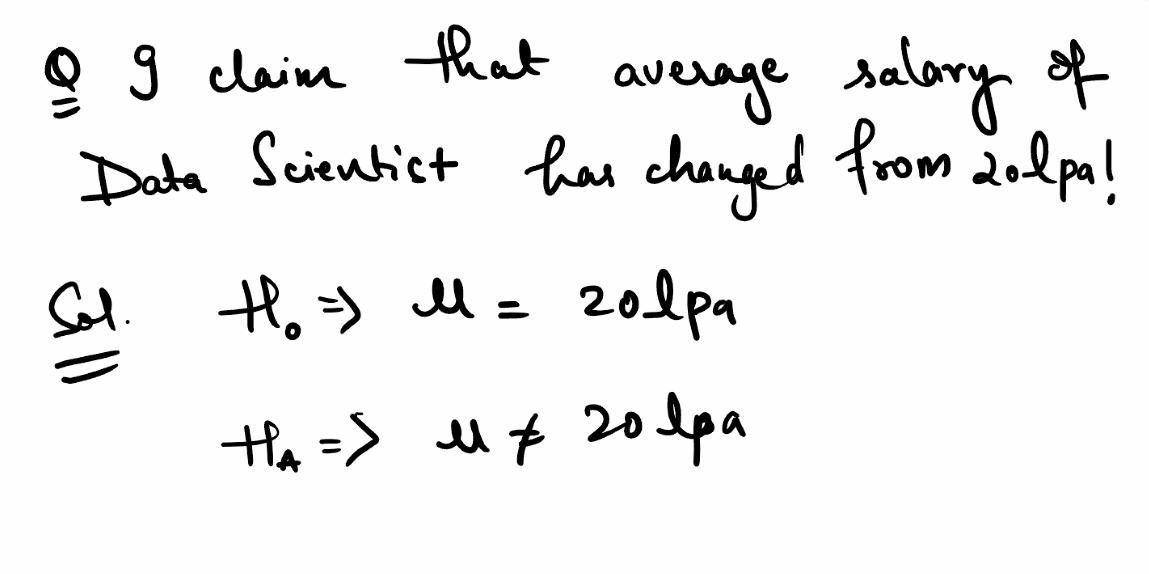 Q I claim that average salary of
Data Scientist has changed from 20lpa!
Sol. H₀ => μ = 20lpa
H_A => μ ≠ 20lpa